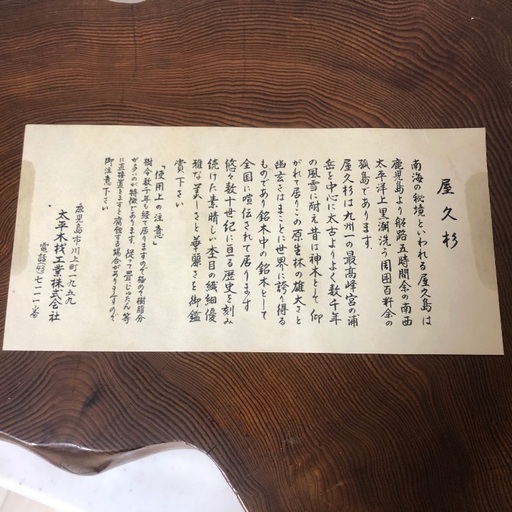 屋久杉
南海の秘境といわれる屋久島は
鹿児島より船路五時間余の南西
太平洋上黒潮洗う周囲百粁余の
孤島であります。
屋久杉は九州一の最高峰宮の浦
岳を中心に太古よりよく数千年
の風雪に耐え昔は神木として仰
がれて居りこの原生林の雄大さと
幽玄さはまことに世界に誇り得る
ものであり銘木中の銘木として
全国に喧伝されて居ります
悠々数十世紀に亘る歴史を刻み
続けた素晴しい杢目の繊細優
雅な美しさと華麗さを御鑑
賞下さい
「使用上の注意」
樹令数千年も経て居りますので極めて樹脂分
が多いのが特徴であります。従って畳じゅたん等
に直接置きますと腐蝕する場合がありますので
御注意下さい
鹿児島市川上町一九五九
太平木材工業株式会社
電話 七一一一番